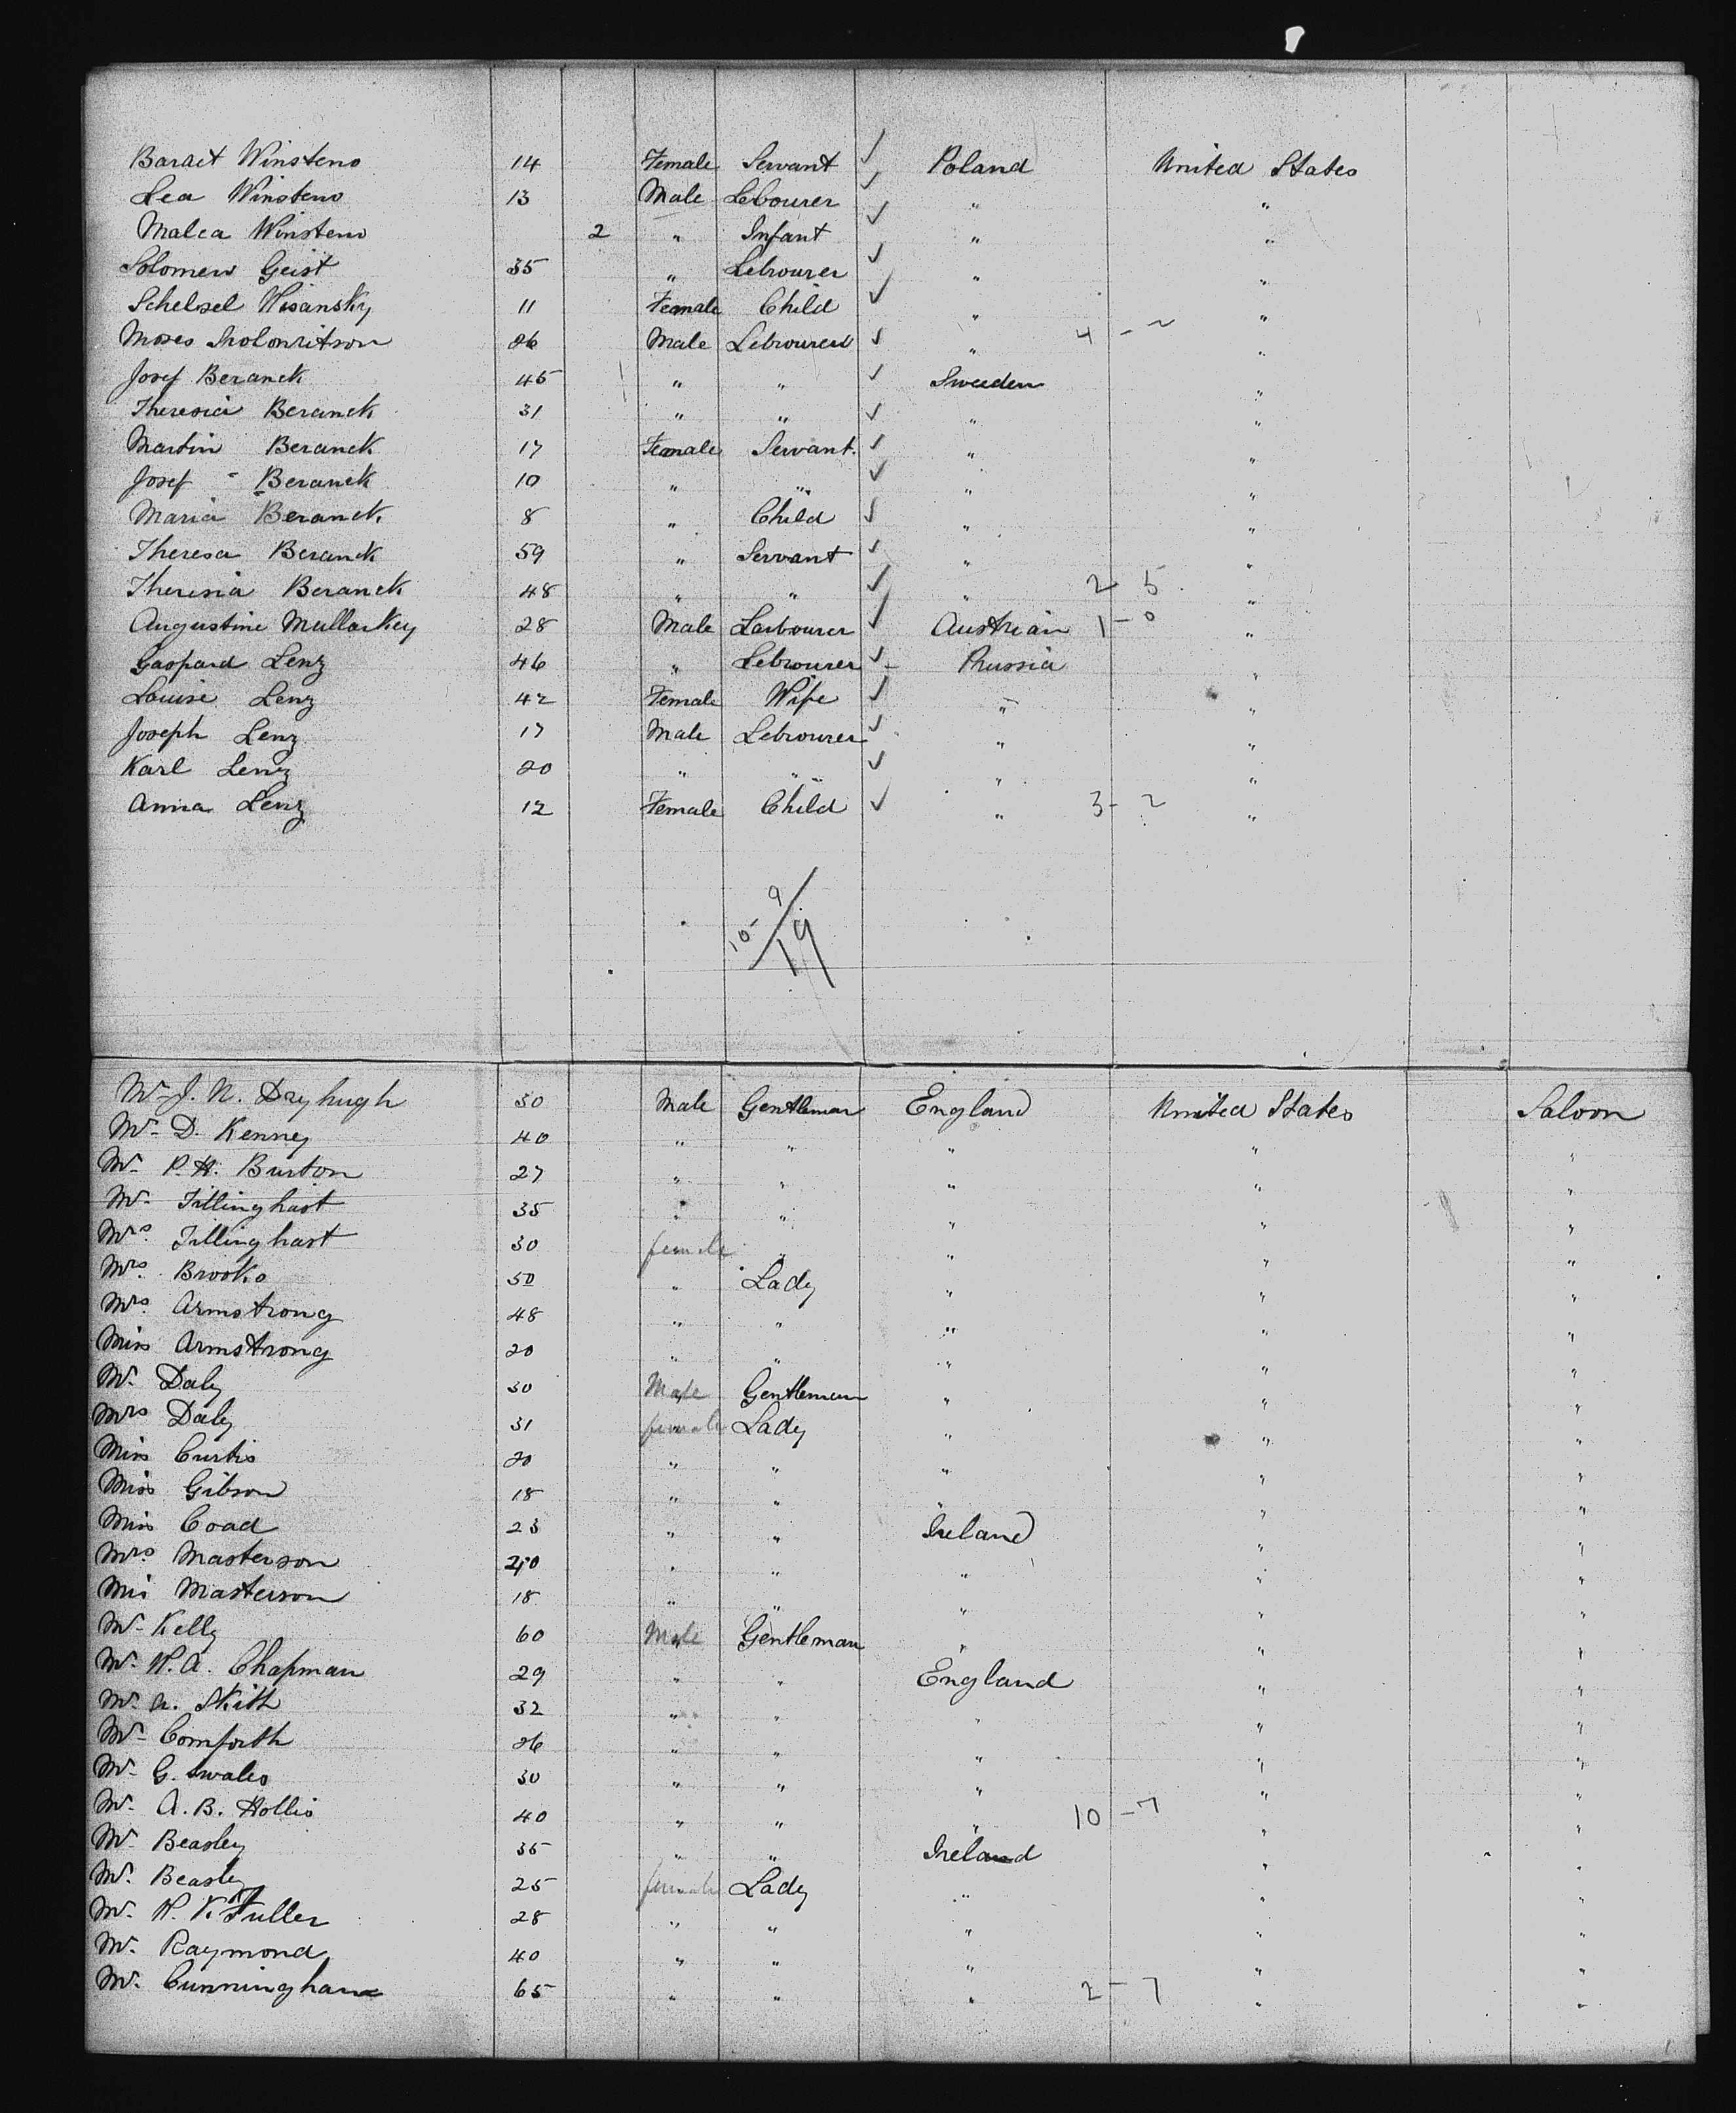 Baract Winsteno 14 Female Servant ✓ Poland United States
Lea Winsteno 13 Male Lebourer ✓ " "
Malca Winsteno 2 " Infant ✓ " "
Solomew Geist 35 " Lebourer ✓ " "
Schelsel Wisansky 11 Female Child ✓ " "
Moses Sholomritson 26 Male Lebourer ✓ " 4 - 2 "
Josef Beranek 45 " " ✓ Sweeden "
Theresia Beranek 31 " " ✓ " "
Martin Beranek 17 Female Servant ✓ " "
Josef Beranek 10 " " ✓ " "
Maria Beranek 8 " Child ✓ " "
Theresa Beranek 59 " Servant ✓ " "
Theresia Beranek 48 " " ✓ " 2 5 "
Augustine Mullarkey 28 Male Larbourer ✓ Austrian 1 - 0 "
Gaspard Lenz 46 " Lebourer ✓ Prussia "
Louise Lenz 42 Female Wife ✓ " "
Joseph Lenz 17 Male Lebourer ✓ " "
Karl Lenz 20 " " ✓ " "
Anna Lenz 12 Female Child ✓ " 3 - 2 "
10 - 9 / 19
Mr J. N. Dryhugh 30 Male Gentleman England United States Saloon
Mr D. Kenney 40 " " " " "
Mr P. H. Burton 27 " " " " "
Mr Tillinghast 35 " " " " "
Mrs Tillinghast 30 female " " " "
Mrs Brooks 50 " Lady " " "
Mrs Armstrong 48 " " " " "
Miss Armstrong 20 " " " " "
Mr Daly 30 Male Gentleman " " "
Mrs Daly 31 female Lady " " "
Miss Curtis 20 " " " " "
Miss Gibson 18 " " " " "
Miss Coad 23 " " Ireland " "
Mrs Masterson 40 " " " " "
Mis Masterson 18 " " " " "
Mr Kelly 60 Male Gentleman " " "
Mr W. A. Chapman 29 " " England " "
Mr A. Skith 32 " " " " "
Mr Comforth 26 " " " " "
Mr G. Swales 30 " " " " "
Mr A. B. Hollis 40 " " " 10 - 7 " "
Mr Beasley 35 " " Ireland " "
Mr Beasley 25 female Lady " " "
Mr W. V. Fuller 28 " " " " "
Mr Raymond 40 " " " " "
Mr Cunningham 65 " " " 2 - 7 " "